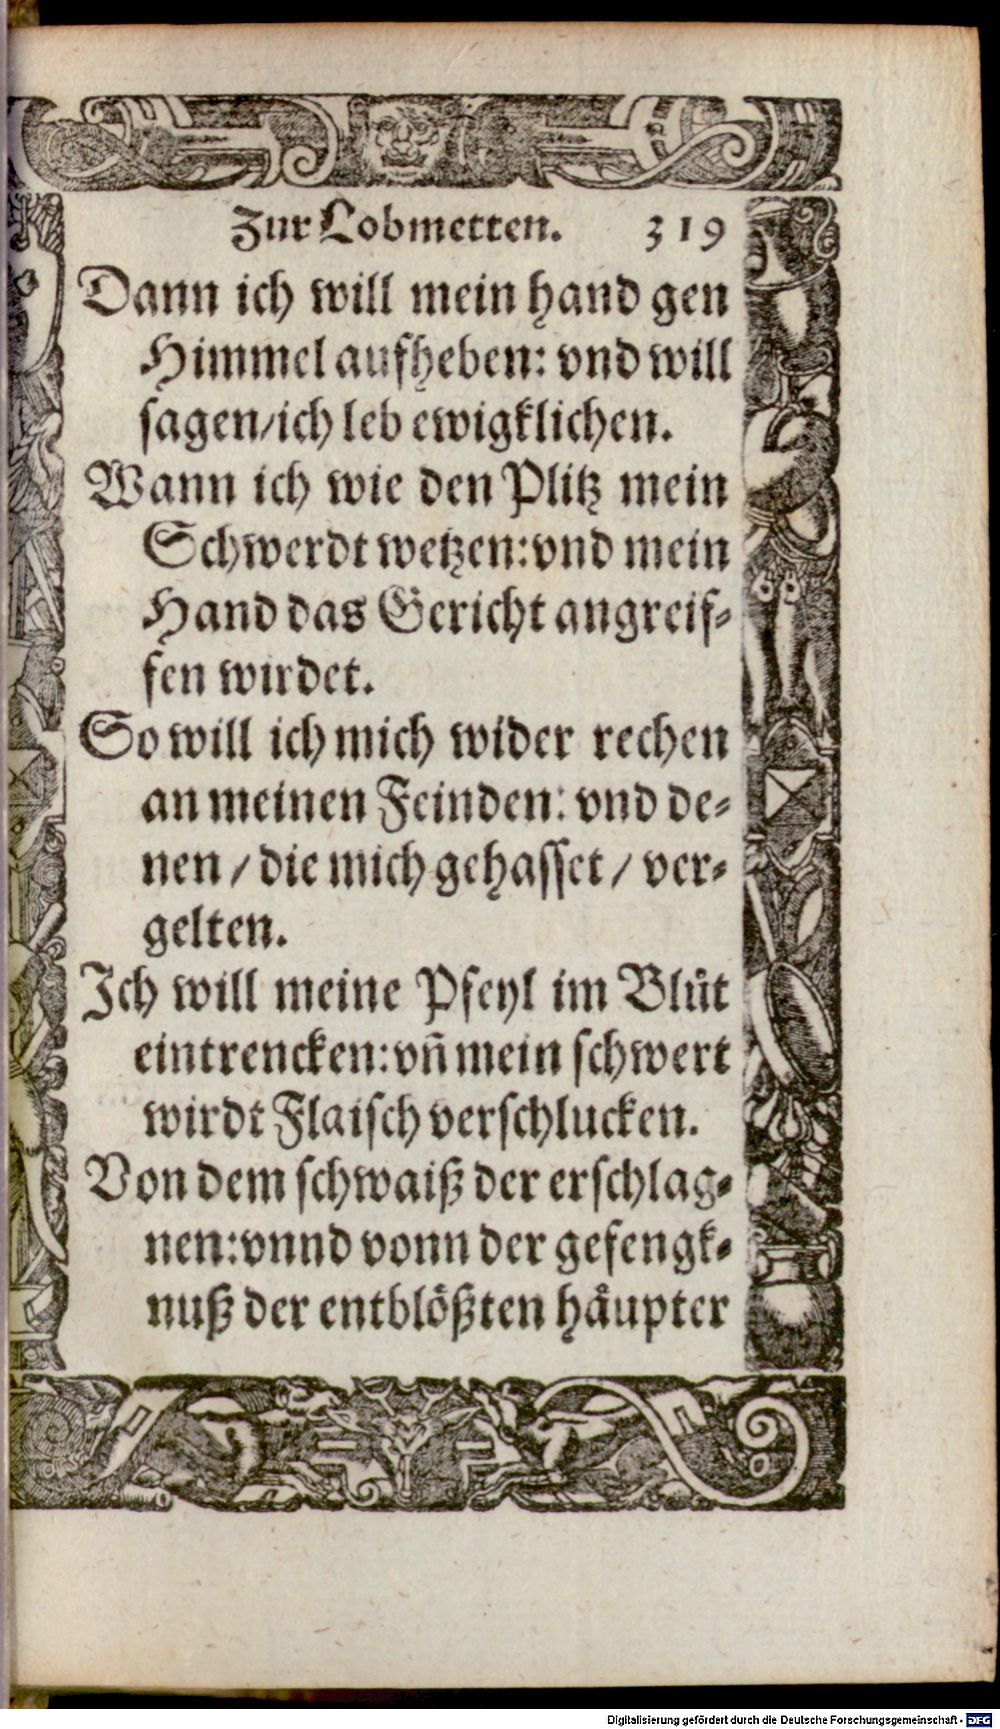 Zur Lobmetten. 319
Dann ich will mein hand gen
Himmel aufheben: vnd will
sagen/ich leb ewigklichen.
Wann ich wie den Plitz mein
Schwerdt wetzen: vnd mein
Hand das Gericht angreif-
fen wirdet.
So will ich mich wider rechen
an meinen Feinden: vnd de-
nen / die mich gehasset / ver-
gelten.
Ich will meine Pfeyl im Blůt
eintrencken: vñ mein schwert
wirdt Flaisch verschlucken.
Von dem schwaiß der erschlag-
nen: vnnd vonn der gefengk-
nuß der entblößten håupter
Digitalisierung gefördert durch die Deutsche Forschungsgemeinschaft - DFG